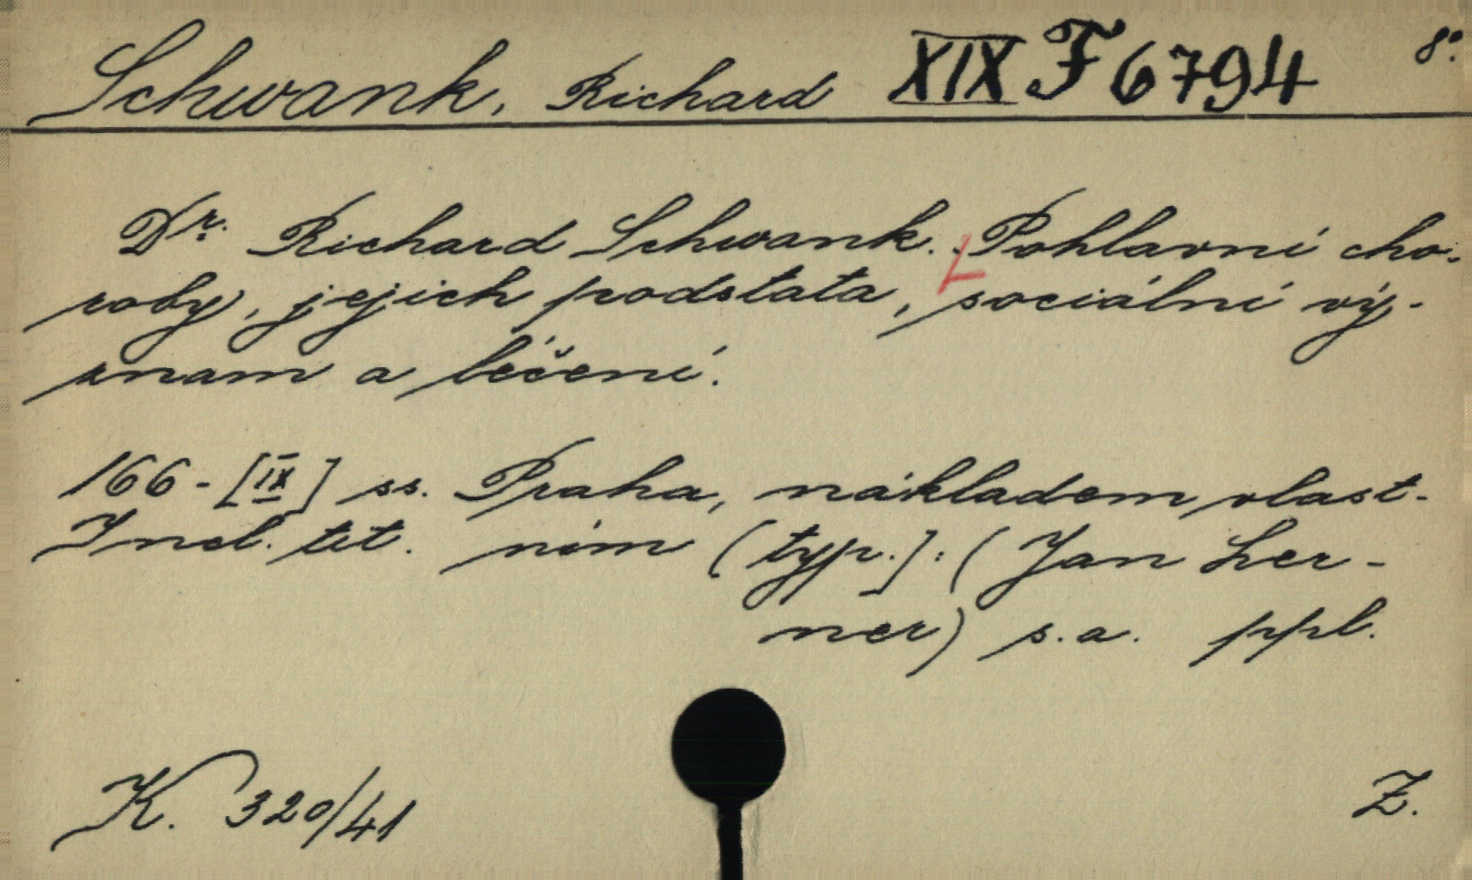 Schwank, Richard XIX F 6794 8°.
Dr. Richard Schwank. Pohlavní cho-
roby, jejich podstata, sociální vý-
znam a léčení.
166-[IX] ss. Praha, nákladem vlast-
Incl. tit. ním (typ.]: (Jan Ler-
ner) s.a. ppl.
K. 320/41 Z.